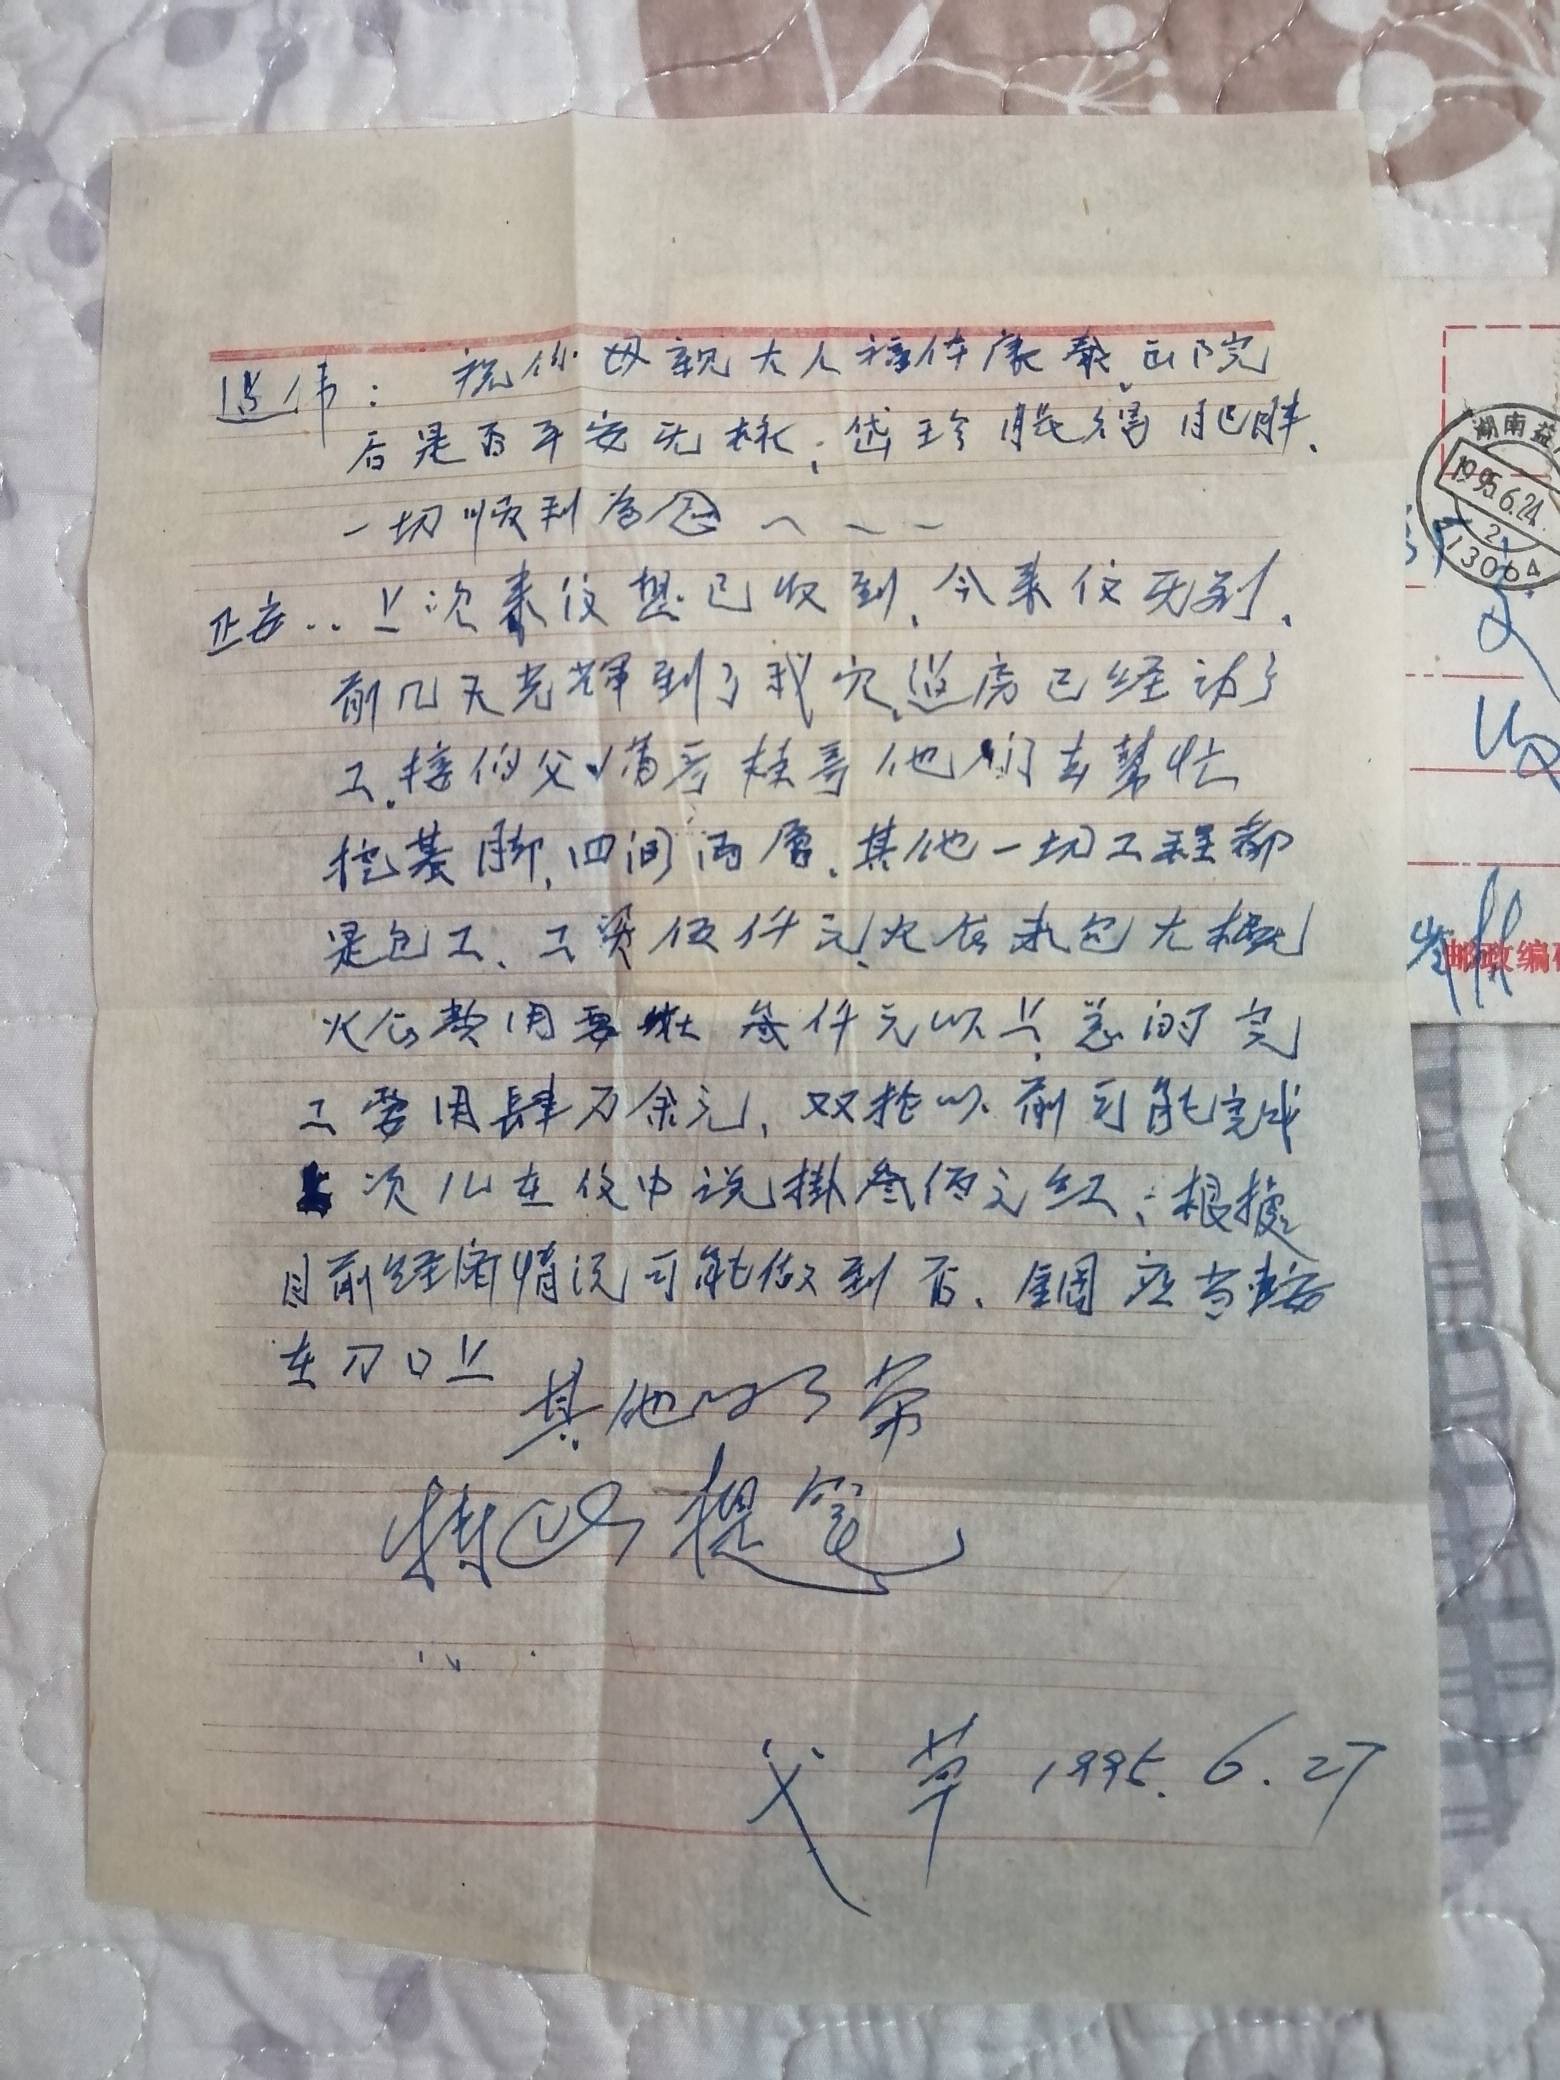 伟：祝你母亲大人福体康泰，出院
后是否平安无恙；岱珍 肥胖、
一切顺利为念
正安..上次来信想已收到、今来信无别、
前几天光辉到了我家，造房已经动了
工，接伯父、满哥桂哥他们去帮忙
挖基脚，四间两层，其他一切工程都
是包工、工资伍仟元，火食承包大概
火食费用要 叁仟元以上，总的完
工要用肆万余元，双抢以前可能完成
项儿在信中说掛叁佰元红；根據
目前经济情况可能做到否、应当
在刀口上
其他
特此提笔
父 草 1995.6.27
湖南益
1995.6.24
2
13064
邮政编